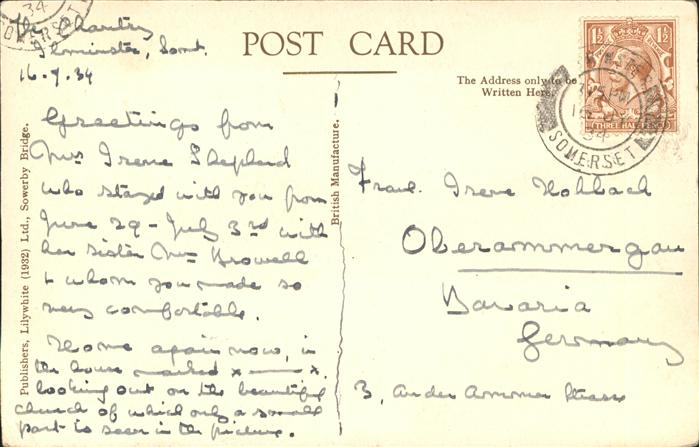 The Chantry
Ilminster, Somt.
16.7.34
POST CARD
The Address only to be
Written Here.
1½ 1½
THREE HALFPENCE
3.15 PM
16 JY
34
SOMERSET
34
SOMERSET
Greetings from
Mrs Irene Shepherd
who stayed with you from
June 29 - July 3rd with
her sister Mrs Browell
& whom you made so
very comfortable.
Home again now, in
the house marked x——x.
looking out on the beautiful
church of which only a small
part is seen in the picture.
Publishers, Lilywhite (1932) Ltd., Sowerby Bridge.
British Manufacture.
Fraul. Irene Hohbach
Oberammergau
Bavaria
Germany
3, Ander Ammer Strasse